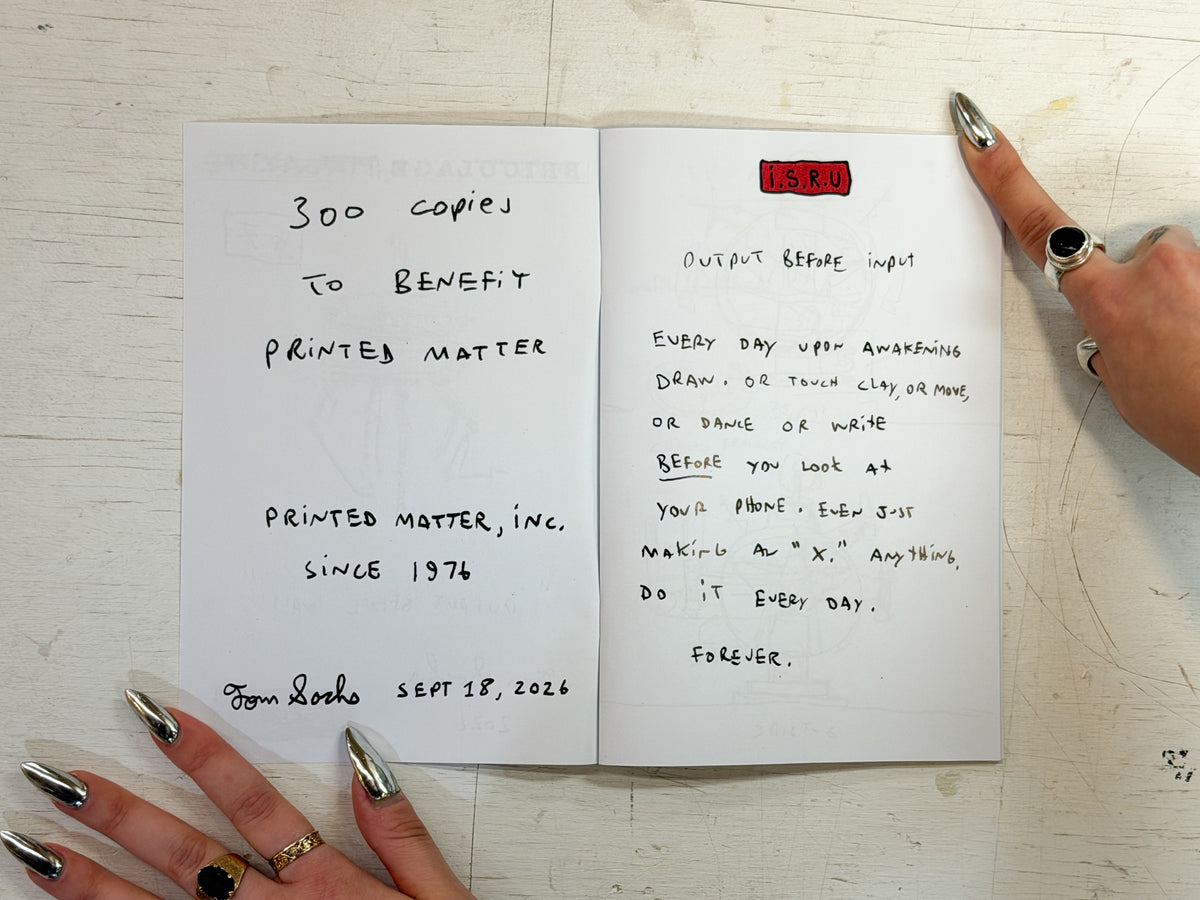 300 copies
TO BENEFiT
PRiNTED MATTER
PRiNTED MATTER, iNC.
SiNCE 1976
Tom Sachs SEPT 18, 2026
i.S.R.U
OUTPUT BEFORE iNPUT
EVERY DAY UPON AWAKENiNG
DRAW. OR TOUCH CLAY, OR MOVE,
OR DANCE OR WRiTE
BEFORE YOU LOOK AT
YOUR PHONE. EVEN JUST
MAKiNG AN "X." ANYTHiNG.
DO iT EVERY DAY.
FOREVER.